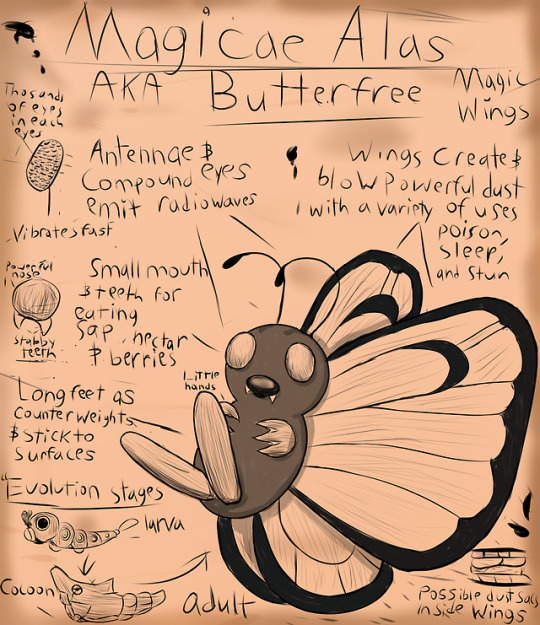 Magicae Alas
AKA Butterfree
Magic
Wings
Thosands
of eyes
in each
eyes
Vibrates fast
Antennae &
Compound eyes
emit radiowaves
Wings Create &
blow Powerful dust
with a variety of uses
Poison,
Sleep,
and Stun
Powerful
nose
stabby
teeth
Small mouth
& teeth for
eating
Sap, nectar
& berries
Little
hands
Long feet as
Counterweights
& Stick to
Surfaces
"Evolution stages
larva
Cocoon
adult
Possible dust Sacs
inside Wings